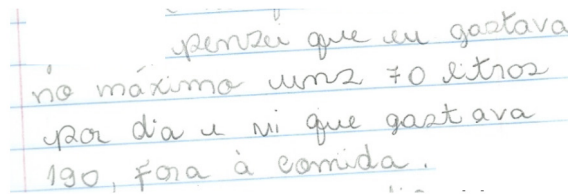 pensei que eu gastava
no máximo uns 70 litros
por dia e vi que gastava
190, fora à comida.